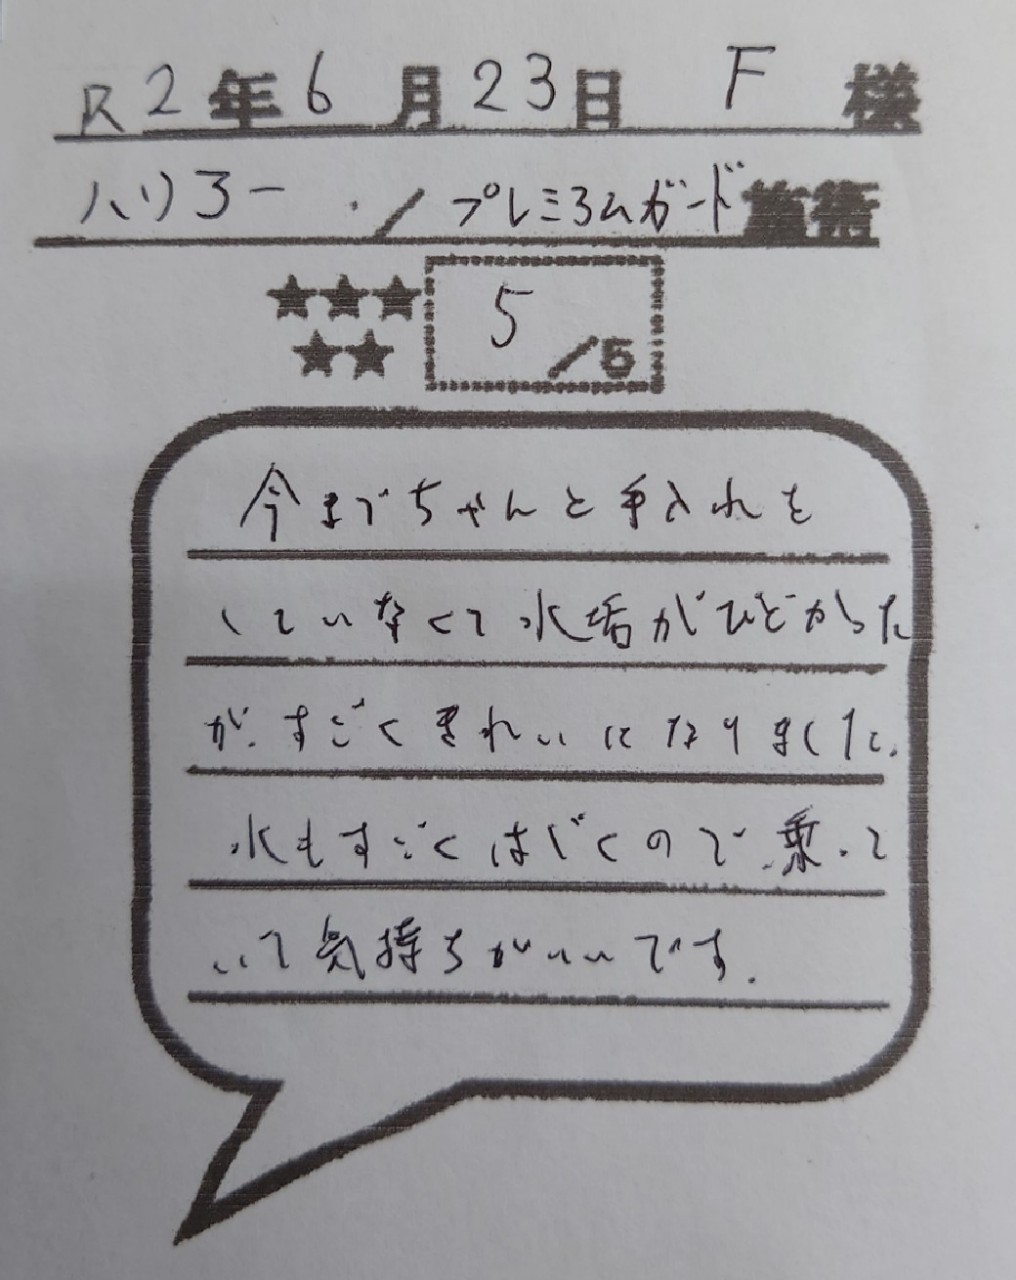 R2年6月23日 F 様
ハリアー ／プレミアムガード施術
★★★
★★ 5／5
今までちゃんと手入れを
していなくて水垢がひどかった
が、すごくきれいになりました。
水もすごくはじくので乗って
いて気持ちがいいです。